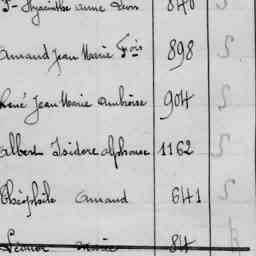 Hyacinthe Anne 840
Amand Jean Marie Fois 898 S
René Jean Marie Ambroise 904 S
Albert Isidore Alphonse 1162 S
Théophile Amand 641 S
Marie 84